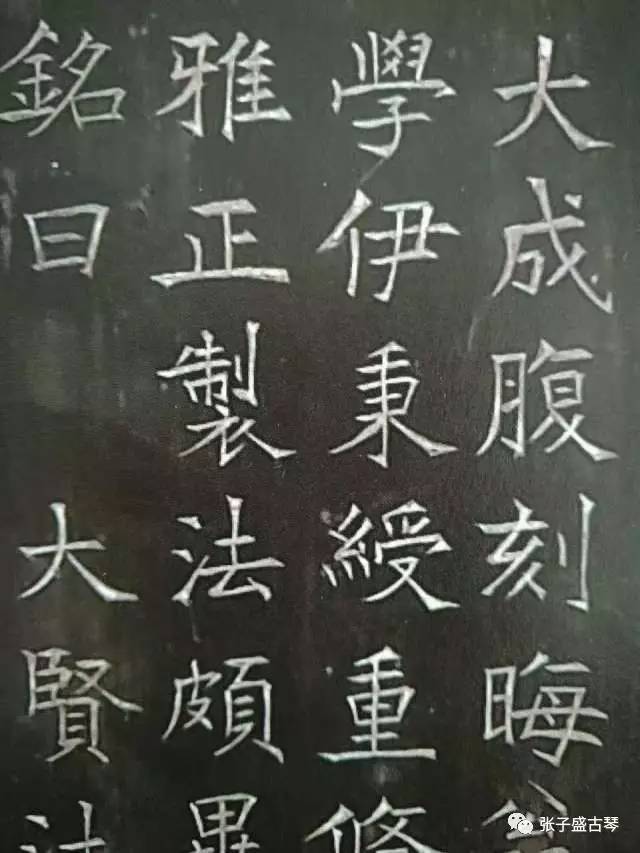 大成腹刻晦翁
學伊秉綬重修
雅正製法頗異
銘曰 大賢法
张子盛古琴